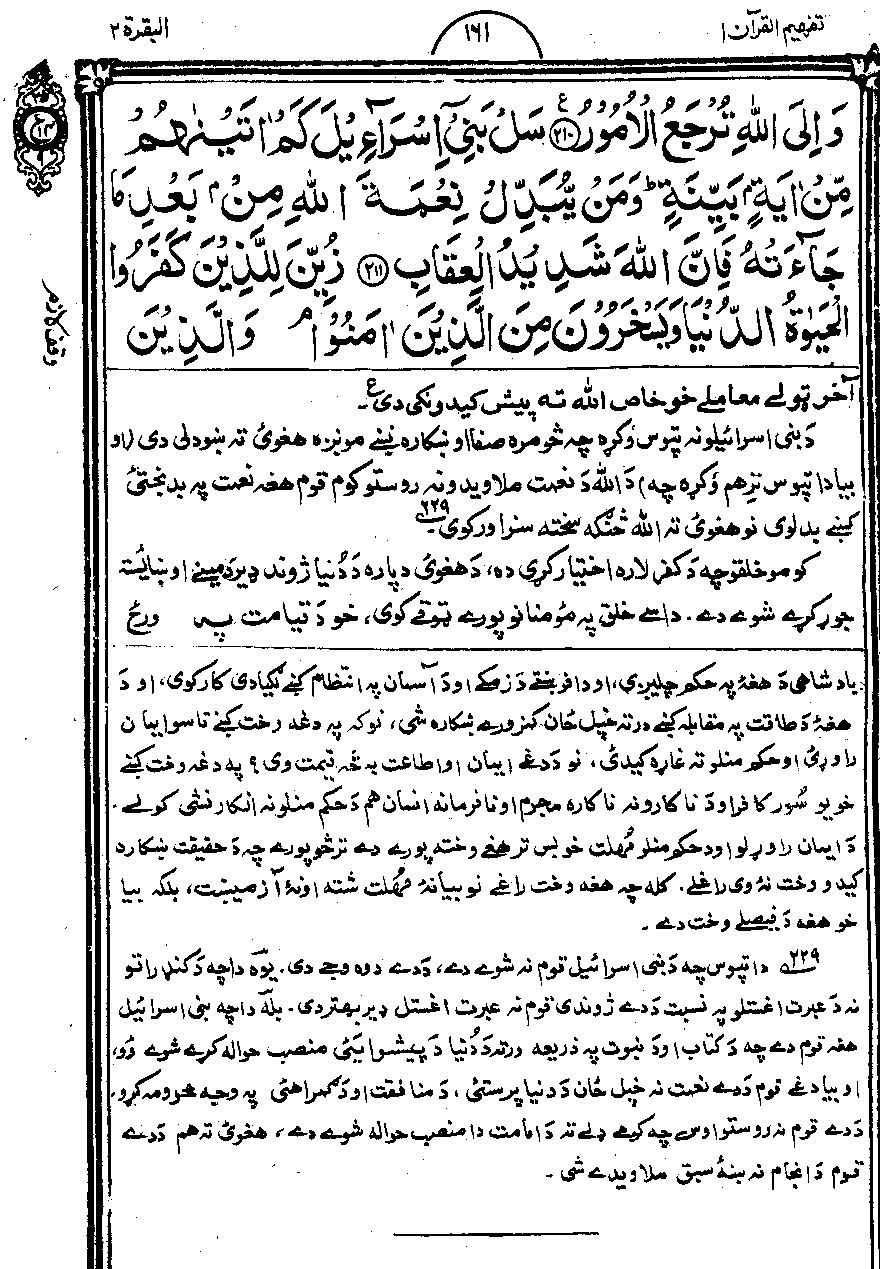 تفهيم القرآن ۱
۱۶۱
البقرة ۲
وَاِلَى اللّٰهِ تُرْجَعُ الْاُمُوْرُ ﴿۲۱۰﴾ ع سَلْ بَنِيْٓ اِسْرَآءِيْلَ كَمْ اٰتَيْنٰهُمْ
مِّنْ اٰيَةٍۢ بَيِّنَةٍ ؕ وَمَنْ يُّبَدِّلْ نِعْمَةَ اللّٰهِ مِنْۢ بَعْدِ مَا
جَآءَتْهُ فَاِنَّ اللّٰهَ شَدِيْدُ الْعِقَابِ ﴿۲۱۱﴾ زُيِّنَ لِلَّذِيْنَ كَفَرُوا
الْحَيٰوةُ الدُّنْيَا وَيَسْخَرُوْنَ مِنَ الَّذِيْنَ اٰمَنُوْا ۘ وَالَّذِيْنَ
وقف لازم
آخر ټولے معاملے خو خاص الله ته پيش کيدونکی دی ع۔
دَ بنی اسرائيلو نه تپوس وکړه چه څومره صفا او ښکاره نښے مونږه هغوئ ته ښودلی دی (او
بيا دا تپوس ترِ هم وکړه چه) دَ الله دَ نعمت ملاويدو نه روستو کوم قوم هغه نعمت په بدبختئ
کښے بدلوی نو هغوئ ته الله څنګه سخته سزا ورکوی۔ ۲۲۹
کومو خلقو چه دَ کفر لاره اختيار کړی ده، دَ هغوئ دپاره دَ دُنيا ژوند ډير دَمينے او ښائسته
جوړ کړے شوے دے. داسے خلق په مؤمنانو پورے ټوقے کوی، خو دَ قيامت په ورځ
بادشاهی دَ هغۀ په حکم چليږی، او دا فرښتے دَ زمکے او دَ آسمان په انتظام کښے لګيادی کار کوی، او دَ
هغۀ دَ طاقت په مقابله کښے درته خپل ځان کمزورے ښکاره شی، نو که په دغه وخت کښے تاسو ايمان
راوړئ او حکم منلو ته غاړه کيدئ، نو دَ دغے ايمان او اطاعت به څۀ قيمت وی؟ په دغه وخت کښے
خو يو سُور کافر او دَ ناکارو نه ناکاره مجرم او نافرمانه انسان هم دَ حکم منلو نه انکار نشی کولے۔
دَ ايمان راوړلو او دَ حکم منلو مُهلت خو بس تر هغے وخته پورے دے ترڅو پورے چه دَ حقيقت ښکاره
کيدو وخت نۀ وی راغلے. کله چه هغه وخت راغے نو بيا نۀ مُهلت شته او نۀ آزميښت، بلکه بيا
خو هغه دَ فيصلے وخت دے۔
۲۲۹ دا تپوس چه دَ بنی اسرائيل قوم نه شوے دے، دَدے دوه وجے دی. يوه دا چه دَ کنډراتو
نه دَ عبرت اغستلو په نسبت دَدے ژوندی قوم نه عبرت اغستل ډير بهتر دی. بله دا چه بنی اسرائيل
هغه قوم دے چه دَ کتاب او دَ نبوت په ذريعه ورته دَ دُنيا دَ پيشوايئ منصب حواله کړے شوے وو،
او بيا دغے قوم دَدے نعمت نه خپل ځان دَ دنيا پرستئ، دَ منافقت او دَ ګمراهئ په وجه محرومه کړو،
دَدے قوم نه روستو اوس چه کومے ډلے ته دَ امامت دا منصب حواله شوے دے، هغوئ ته هم دَدے
قوم دَ انجام نه ښۀ سبق ملاويدے شی۔